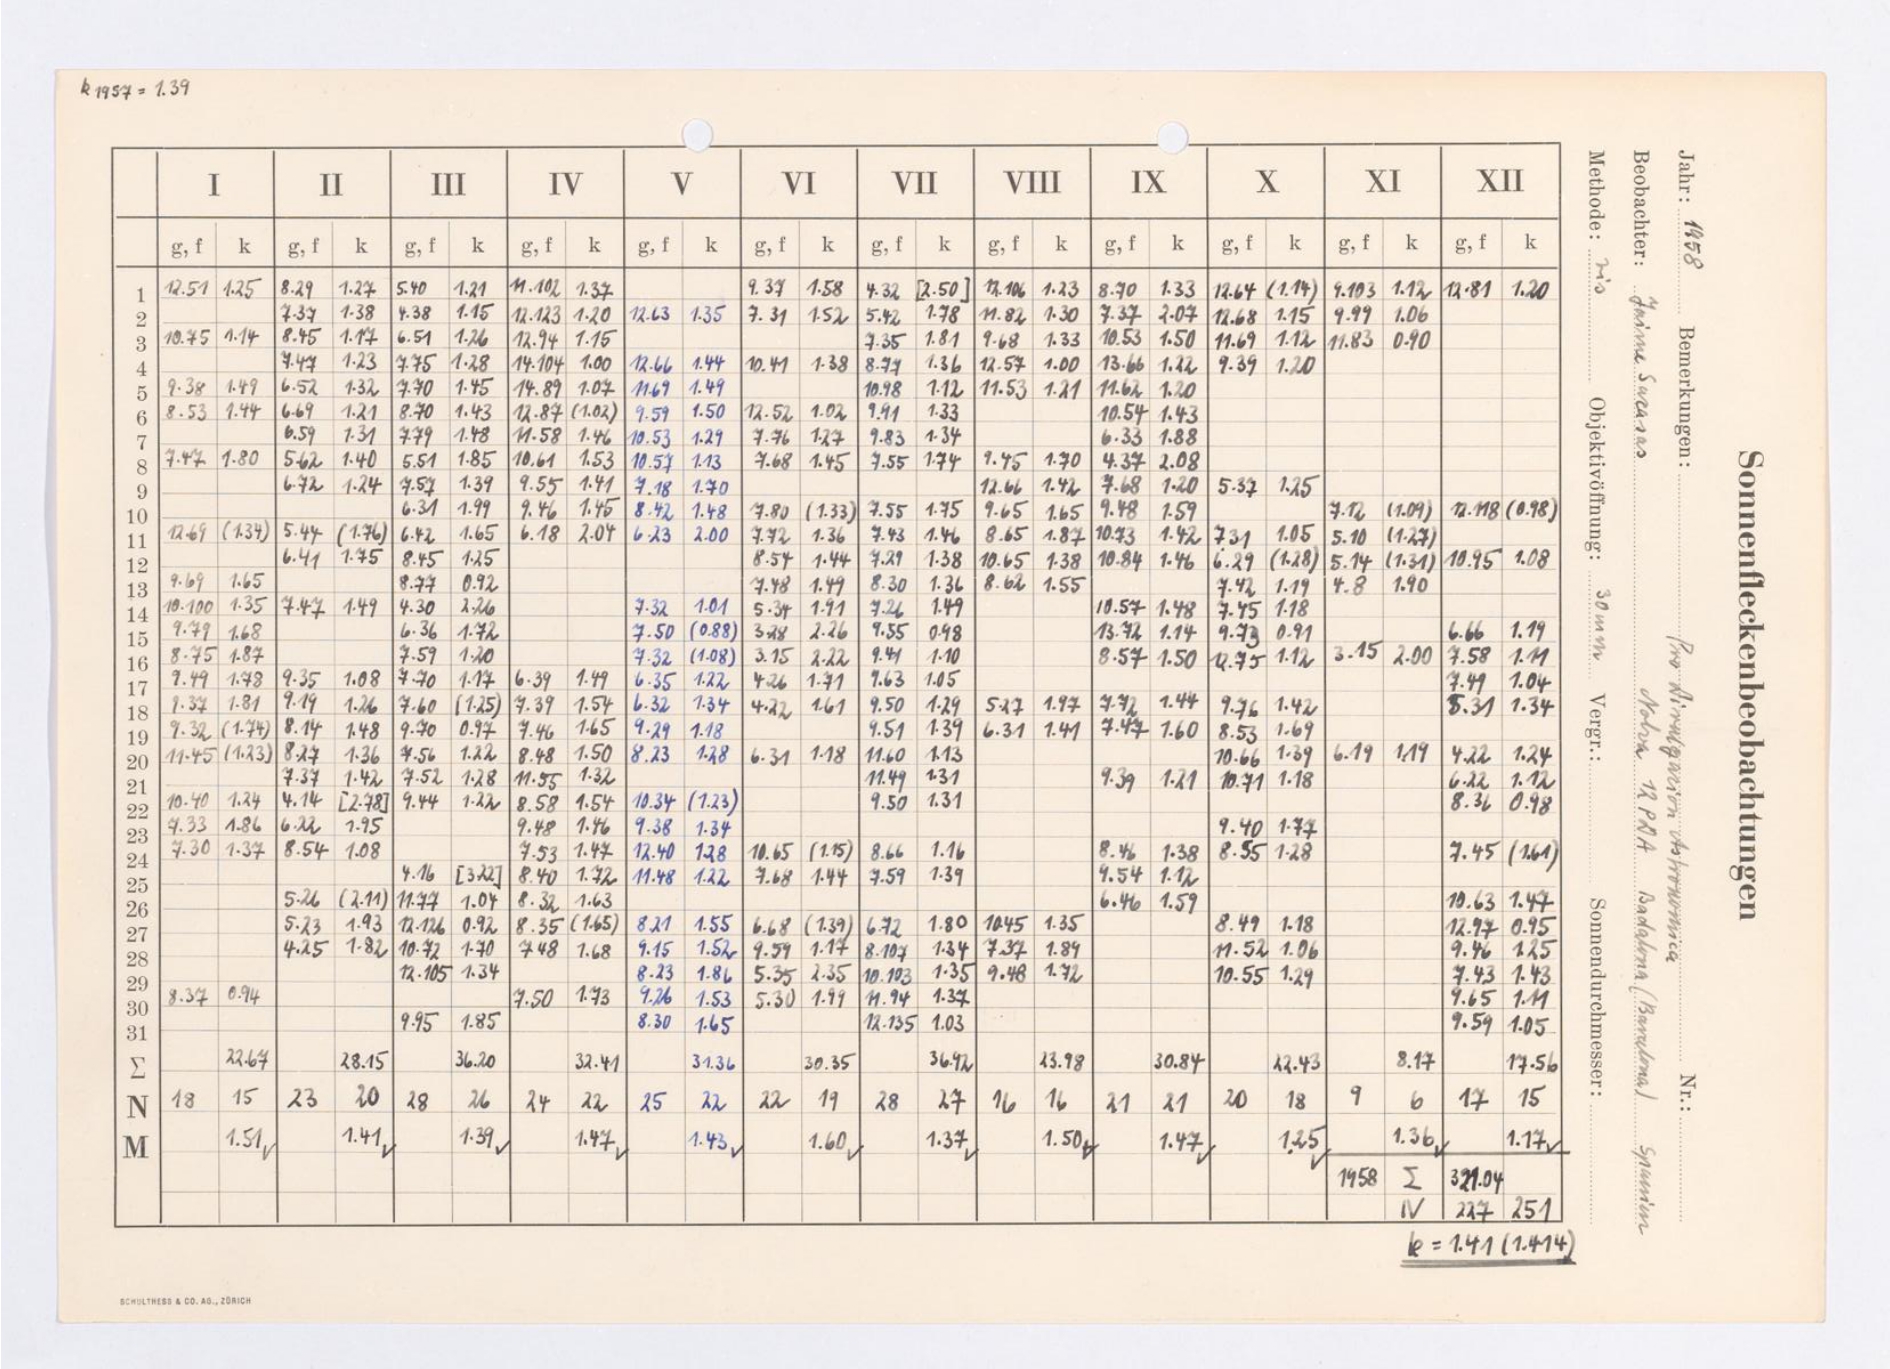 k 1957 = 1.39
Sonnenfleckenbeobachtungen
Jahr: 1958 Bemerkungen: Nr.:
Beobachter: Jaime Sucasas Nolva 12 PRA Badalona (Barcelona) Spanien
Methode: vis Objektivöffnung: 30mm Vergr.: Sonnendurchmesser:
I II III IV V VI VII VIII IX X XI XII
g, f k g, f k g, f k g, f k g, f k g, f k g, f k g, f k g, f k g, f k g, f k g, f k
1 12.51 1.25 8.29 1.27 5.40 1.21 11.102 1.37 9.37 1.58 4.32 [2.50] 12.106 1.23 8.70 1.33 12.64 (1.14) 9.103 1.12 12.81 1.20
2 7.37 1.38 4.38 1.15 12.123 1.20 12.63 1.35 7.31 1.52 5.42 1.78 11.82 1.30 7.37 2.07 12.68 1.15 9.99 1.06
3 10.75 1.14 8.45 1.17 6.51 1.26 12.94 1.15 7.35 1.81 9.68 1.33 10.53 1.50 11.69 1.12 11.83 0.90
4 7.47 1.23 7.75 1.28 14.104 1.00 12.66 1.44 10.41 1.38 8.77 1.36 12.57 1.00 13.66 1.22 9.39 1.20
5 9.38 1.49 6.52 1.32 7.70 1.45 14.89 1.07 11.69 1.49 10.98 1.12 11.53 1.21 11.62 1.20
6 8.53 1.44 6.69 1.21 8.70 1.43 12.87 (1.02) 9.59 1.50 12.52 1.02 9.91 1.33 10.54 1.43
7 6.59 1.31 7.79 1.48 11.58 1.46 10.53 1.29 7.76 1.27 9.83 1.34 6.33 1.88
8 7.47 1.80 5.62 1.40 5.51 1.85 10.61 1.53 10.57 1.13 7.68 1.45 7.55 1.74 9.45 1.70 4.37 2.08
9 6.72 1.24 7.57 1.39 9.55 1.41 7.18 1.70 12.66 1.42 7.68 1.20 5.37 1.25
10 6.31 1.99 9.46 1.45 8.42 1.48 7.80 (1.33) 7.55 1.75 9.65 1.65 9.48 1.59 7.12 (1.09) 12.118 (0.98)
11 12.69 (1.34) 5.44 (1.76) 6.42 1.65 6.18 2.04 6.23 2.00 7.72 1.36 7.43 1.46 8.65 1.87 10.73 1.42 7.31 1.05 5.10 (1.27)
12 6.41 1.75 8.45 1.25 8.54 1.44 7.29 1.38 10.65 1.38 10.84 1.46 6.29 (1.28) 5.14 (1.31) 10.95 1.08
13 9.69 1.65 8.77 0.92 7.48 1.49 8.30 1.36 8.62 1.55 7.42 1.19 4.8 1.90
14 10.100 1.35 7.47 1.49 4.30 2.26 7.32 1.01 5.34 1.91 7.26 1.49 10.57 1.48 7.45 1.18
15 9.79 1.68 6.36 1.72 7.50 (0.88) 3.28 2.26 9.55 0.98 13.72 1.14 9.73 0.91 6.66 1.19
16 8.75 1.87 7.59 1.20 7.32 (1.08) 3.15 2.22 9.41 1.10 8.57 1.50 12.75 1.12 3.15 2.00 7.58 1.11
17 9.49 1.78 9.35 1.08 7.70 1.17 6.39 1.49 6.35 1.22 4.26 1.71 9.63 1.05 7.49 1.04
18 8.37 1.81 9.19 1.26 7.60 (1.25) 7.39 1.54 6.32 1.34 4.22 1.61 9.50 1.29 5.27 1.97 7.72 1.44 9.76 1.42 8.31 1.34
19 9.32 (1.74) 8.14 1.48 9.70 0.97 7.46 1.65 9.29 1.18 9.51 1.39 6.31 1.41 7.47 1.60 8.53 1.69
20 11.45 (1.23) 8.27 1.36 7.56 1.22 8.48 1.50 8.23 1.28 6.31 1.18 11.60 1.13 10.66 1.39 6.19 1.19 4.22 1.24
21 7.37 1.42 7.52 1.28 11.55 1.32 11.49 1.31 9.39 1.21 10.71 1.18 6.22 1.12
22 10.40 1.24 4.14 [2.78] 9.44 1.22 8.58 1.54 10.34 (1.23) 9.50 1.31 8.36 0.98
23 7.33 1.86 6.22 1.95 9.48 1.46 9.38 1.34 9.40 1.77
24 7.30 1.37 8.54 1.08 7.53 1.47 12.40 1.28 10.65 (1.15) 8.66 1.16 8.46 1.38 8.55 1.28 7.45 (1.61)
25 4.16 [3.22] 8.40 1.72 11.48 1.22 7.68 1.44 7.59 1.39 9.54 1.12
26 5.26 (2.11) 11.77 1.04 8.32 1.63 6.46 1.59 10.63 1.47
27 5.23 1.93 12.126 0.92 8.35 (1.65) 8.21 1.55 6.68 (1.39) 6.72 1.80 10.45 1.35 8.49 1.18 12.97 0.95
28 4.25 1.82 10.72 1.70 7.48 1.68 9.15 1.52 9.59 1.17 8.107 1.34 7.37 1.89 11.52 1.06 9.46 1.25
29 12.105 1.34 8.23 1.86 5.35 2.35 10.103 1.35 9.48 1.72 10.55 1.29 7.43 1.43
30 8.37 0.94 7.50 1.73 9.26 1.53 5.30 1.99 11.94 1.37 9.65 1.11
31 9.95 1.85 8.30 1.65 12.135 1.03 9.59 1.05
Σ 22.67 28.15 36.20 32.41 31.36 30.35 36.92 23.98 30.84 22.43 8.17 17.56
N 18 15 23 20 28 26 24 22 25 22 22 19 28 27 16 16 21 21 20 18 9 6 17 15
M 1.51 1.41 1.39 1.47 1.43 1.60 1.37 1.50 1.47 1.25 1.36 1.17
1958 Σ 321.04
N 227 251
k = 1.41 (1.414)
SCHULTHESS & CO. AG., ZÜRICH